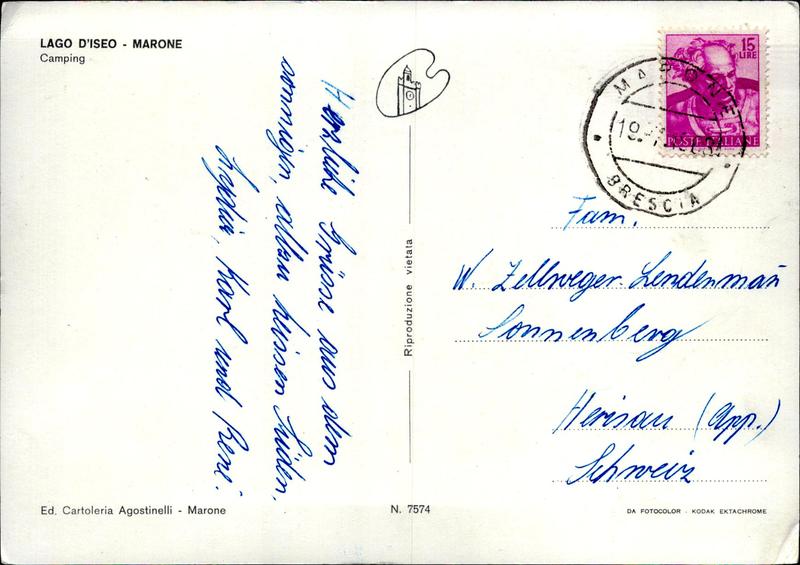 LAGO D'ISEO - MARONE
Camping
Herzliche Grüsse aus dem
sonnigen, allzu heissen Süden.
Lydia, Karl und René.
Riproduzione vietata
15
LIRE
POSTE ITALIANE
MARONE
19.
BRESCIA
Fam.
W. Zellweger-Lendenmañ
Sonnenberg
Herisau (App.)
Schweiz
Ed. Cartoleria Agostinelli - Marone
N. 7574
DA FOTOCOLOR - KODAK EKTACHROME